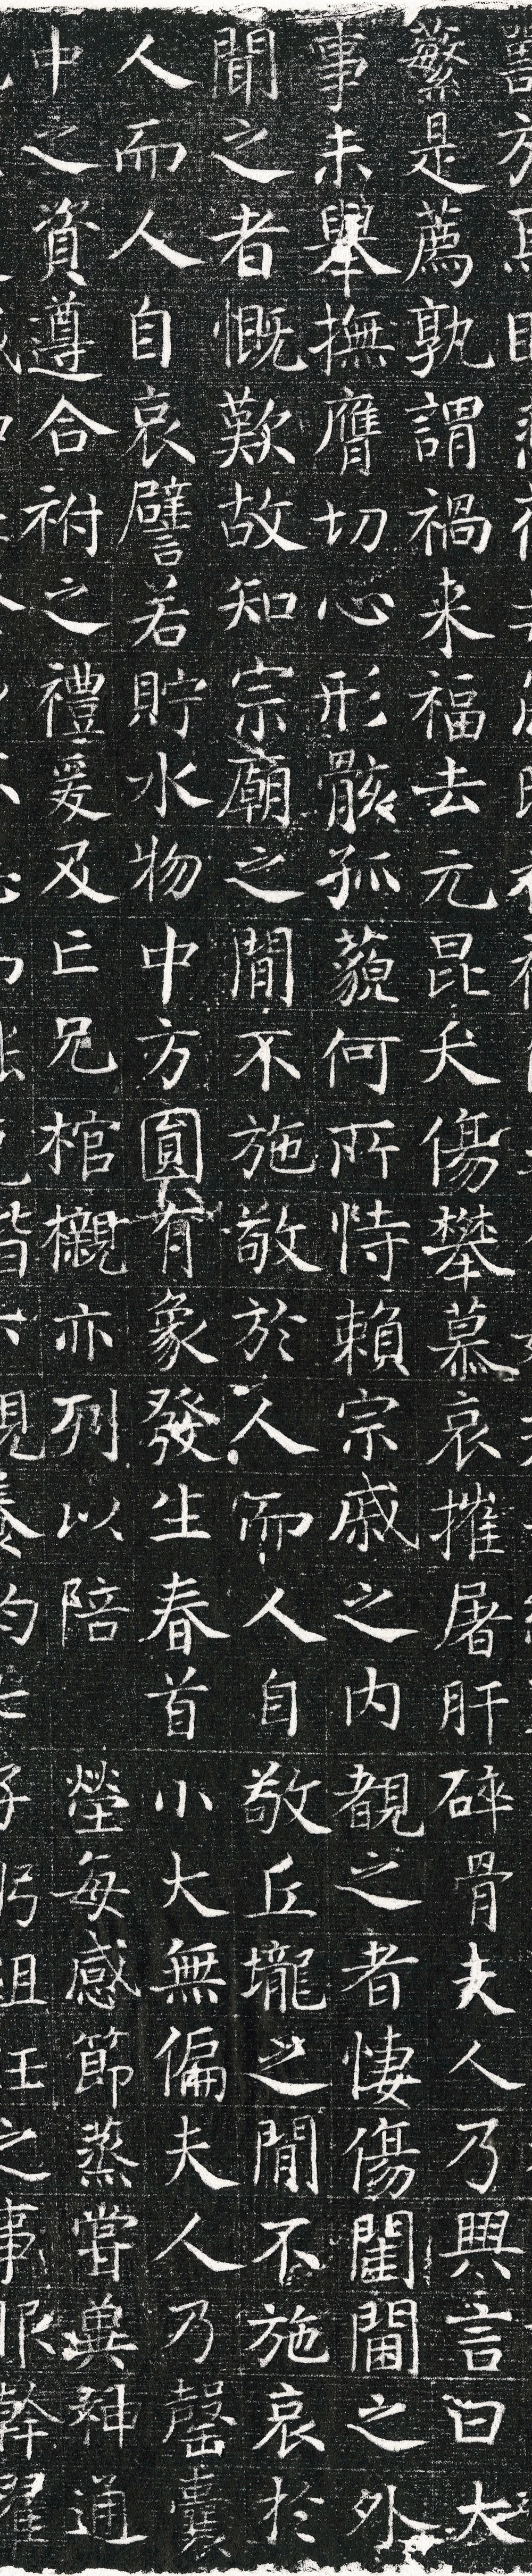 蘩是薦孰謂禍来福去元昆夭傷攀慕哀摧屠肝碎骨夫人乃興言曰大
事未舉撫膺切心形骸孤藐何所恃賴宗戚之内覩之者悽傷閨閫之外
聞之者慨歎故知宗廟之間不施敬於人而人自敬丘壠之間不施哀於
人而人自哀譬若貯水物中方圎有象發生春首小大無偏夫人乃罄囊
中之資遵合祔之禮爰及亡兄棺櫬亦列以陪塋每感節蒸嘗冀神通